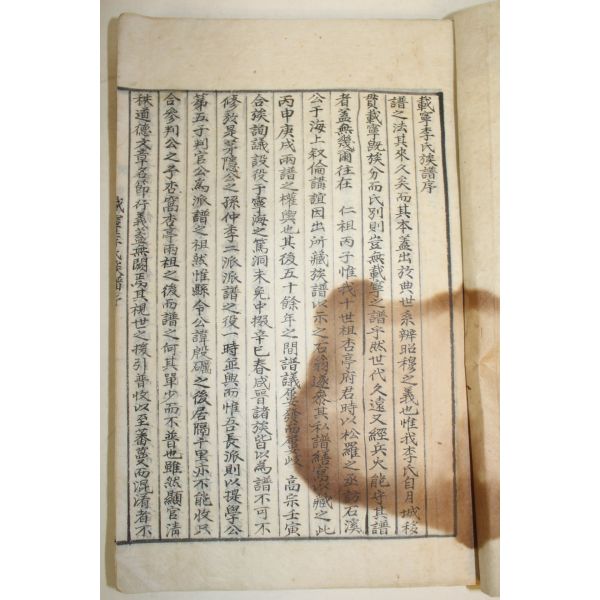 載寧李氏族譜序
譜之法其來久矣而其本盖出於典世系辨昭穆之義也惟我李氏自月城移
貫載寧旣族分而氏別則豈無載寧之譜乎然世代久遠又經兵火能守其譜
者盖無幾爾往在 仁祖丙子惟我十世祖杏亭府君時以松羅之丞訪石溪
公于海上叙倫講誼因出所藏族譜以示之石翁遂參其私譜繕寫以藏之此
丙申庚戌兩譜之權輿也其後五十餘年之間譜議屢發而屢歧 高宗壬寅
合族詢議設役于寧海之篤洞未免中掇辛巳春咸晉諸族皆以爲譜不可不
修玆是茅隱公之孫仲季二派派譜之役一時並興而惟吾長派則以提學公
第五子判官公爲派譜之祖然惟縣令公諱殷礪之後居隔千里亦不能收只
合參判公之子杏窩杏亭兩祖之後而譜之何其單少而不普也雖然顯官淸
秩道德文章名節行義盖無闕焉其視世之援引普收以至蕃蔓而混淆者不
載寧李氏族譜序